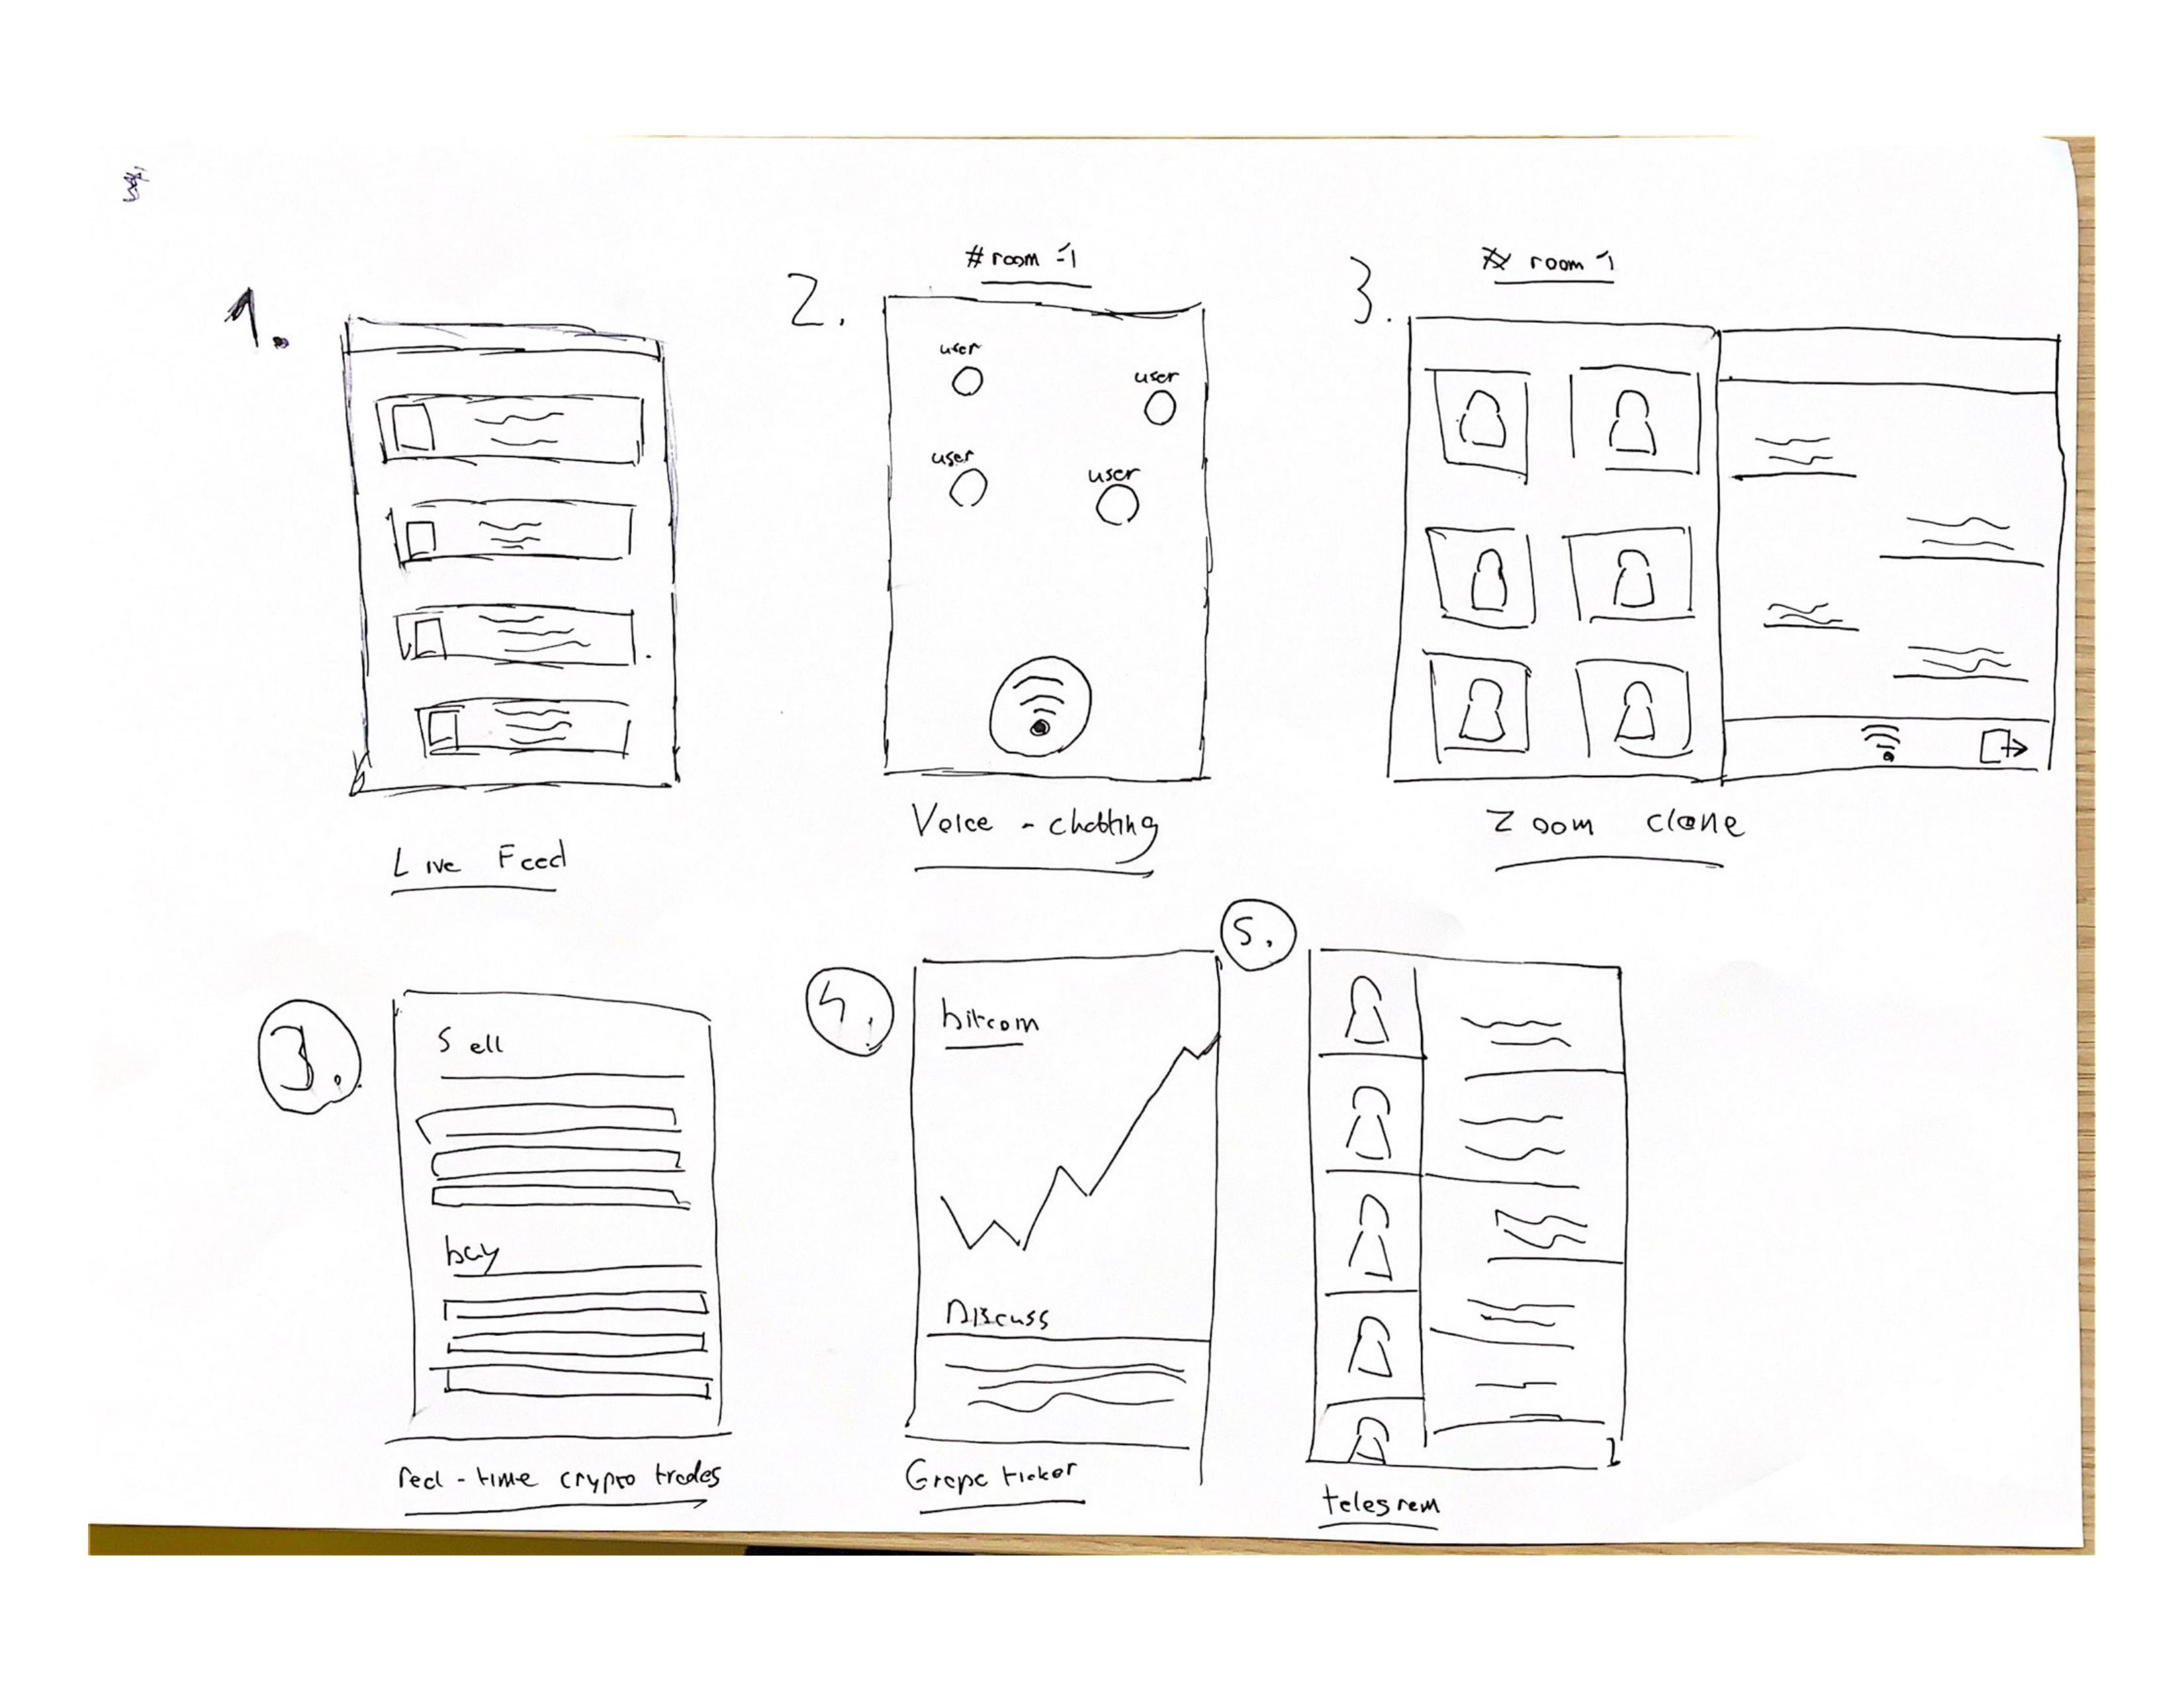 1.
Live Feed
2.
#room -1
user
user
user
user
Voice - chatting
3.
room 1
Zoom clone
3.
Sell
buy
real-time crypto trades
4.
bitcoin
Discuss
ticker
5.
telegram